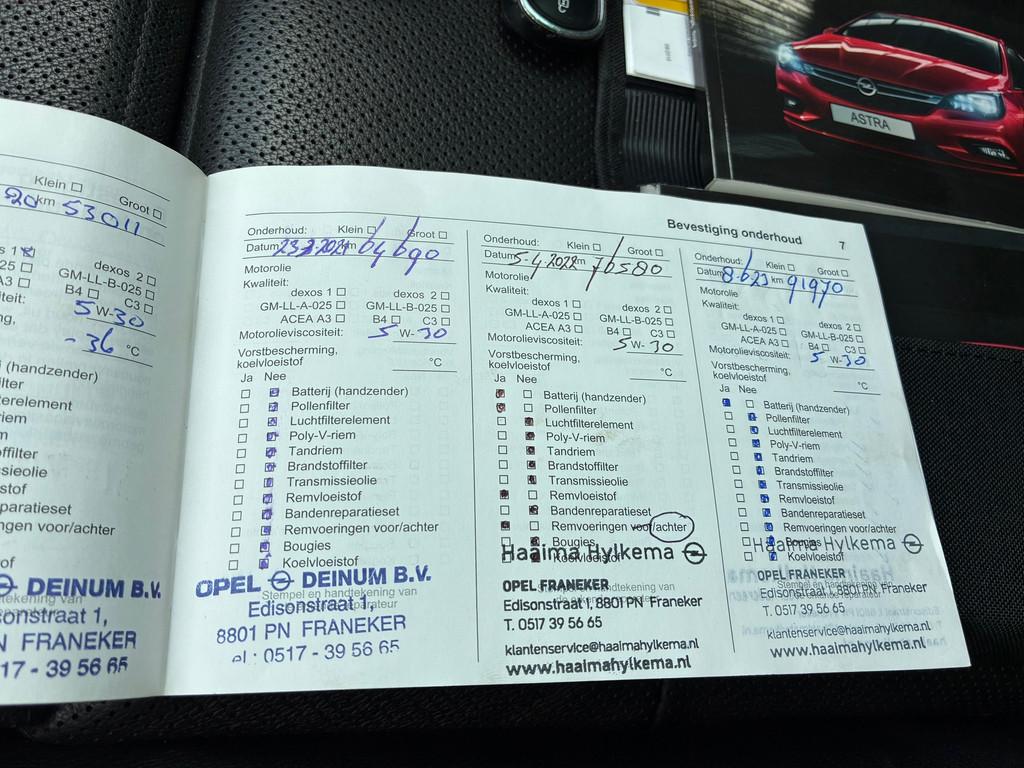 ASTRA
Klein ☐ Groot ☐
20 km 53011
dexos 2 ☐
GM-LL-B-025 ☐
B4 ☐ C3 ☐
5 W-30
-36 °C
(handzender)
OPEL DEINUM B.V.
Edisonstraat 1,
N FRANEKER
17 - 39 56 65
Onderhoud: Klein ☐ Groot ☐
km 64690
Motorolie
Kwaliteit:
dexos 1 ☐ dexos 2 ☐
GM-LL-A-025 ☐ GM-LL-B-025 ☐
ACEA A3 ☐ B4 ☐ C3 ☐
Motorolieviscositeit: 5 W-30
Vorstbescherming,
koelvloeistof °C
Ja Nee
Batterij (handzender)
Pollenfilter
Luchtfilterelement
Poly-V-riem
Tandriem
Brandstoffilter
Transmissieolie
Remvloeistof
Bandenreparatieset
Remvoeringen voor/achter
Bougies
Koelvloeistof
OPEL DEINUM B.V.
Edisonstraat 1,
8801 PN FRANEKER
el : 0517 - 39 56 65
Bevestiging onderhoud 7
Onderhoud: Klein ☐ Groot ☐
Datum 5-4 2022 km 76580
Motorolie
Kwaliteit:
dexos 1 ☐ dexos 2 ☐
GM-LL-A-025 ☐ GM-LL-B-025 ☐
ACEA A3 ☐ B4 ☐ C3 ☐
Motorolieviscositeit: 5 W-30
Vorstbescherming,
koelvloeistof °C
Ja Nee
Batterij (handzender)
Pollenfilter
Luchtfilterelement
Poly-V-riem
Tandriem
Brandstoffilter
Transmissieolie
Remvloeistof
Bandenreparatieset
Remvoeringen voor/achter
Bougies
Haaima Hylkema
OPEL FRANEKER
Edisonstraat 1, 8801 PN Franeker
T. 0517 39 56 65
klantenservice@haaimahylkema.nl
www.haaimahylkema.nl
Onderhoud: Klein ☐ Groot ☐
Datum 8-6 23 km 91970
Motorolie
Kwaliteit:
dexos 1 ☐ dexos 2 ☐
GM-LL-A-025 ☐ GM-LL-B-025 ☐
ACEA A3 ☐ B4 ☐ C3 ☐
Motorolieviscositeit: 5 W-30
Vorstbescherming,
koelvloeistof °C
Ja Nee
Batterij (handzender)
Pollenfilter
Luchtfilterelement
Poly-V-riem
Tandriem
Brandstoffilter
Transmissieolie
Remvloeistof
Bandenreparatieset
Remvoeringen voor/achter
Bougies
Haaima Hylkema
Koelvloeistof
OPEL FRANEKER
Edisonstraat 1, 8801 PN Franeker
T. 0517 39 56 65
klantenservice@haaimahylkema.nl
www.haaimahylkema.nl